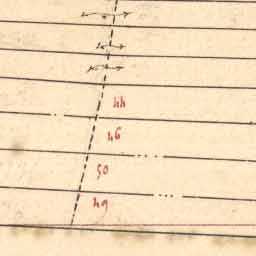 44
46
50
49